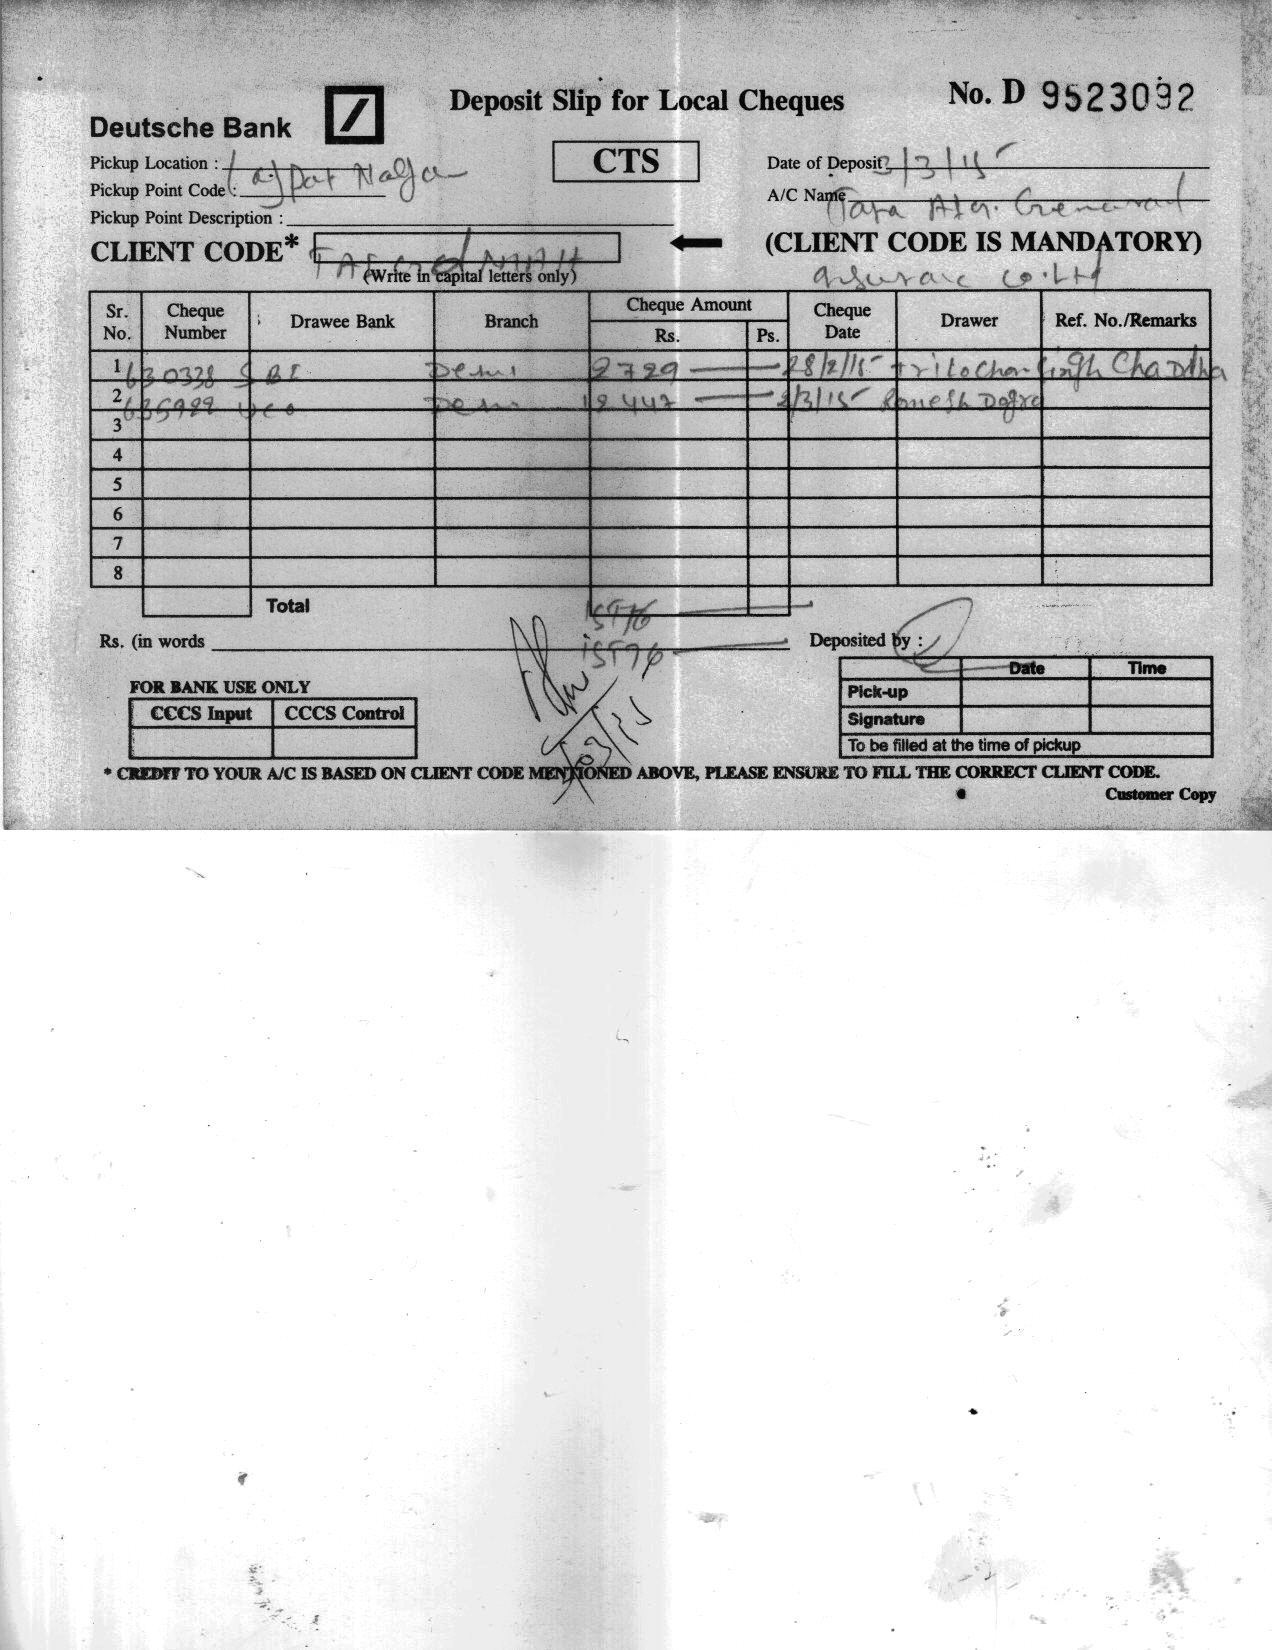 Deutsche Bank
Deposit Slip for Local Cheques
No. D 9523092
CTS
Pickup Location : Lajpat Nagar
Pickup Point Code :
Pickup Point Description :
Date of Deposit 3/3/15
A/C Name Tata AIG. General
CLIENT CODE*
(CLIENT CODE IS MANDATORY)
(Write in capital letters only)
Insurance Co. Ltd
Sr. No. Cheque Number Drawee Bank Branch Cheque Amount Rs. Ps. Cheque Date Drawer Ref. No./Remarks
1 630338 SBI Delhi 2729 28/2/15 Trilochan Singh Chaddha
2 UCO Delhi 12447 2/3/15 Romesh Dogra
3
4
5
6
7
8
Total
Rs. (in words
Deposited by :
Date Time
Pick-up
Signature
To be filled at the time of pickup
FOR BANK USE ONLY
CCCS Input CCCS Control
* CREDIT TO YOUR A/C IS BASED ON CLIENT CODE MENTIONED ABOVE, PLEASE ENSURE TO FILL THE CORRECT CLIENT CODE.
Customer Copy